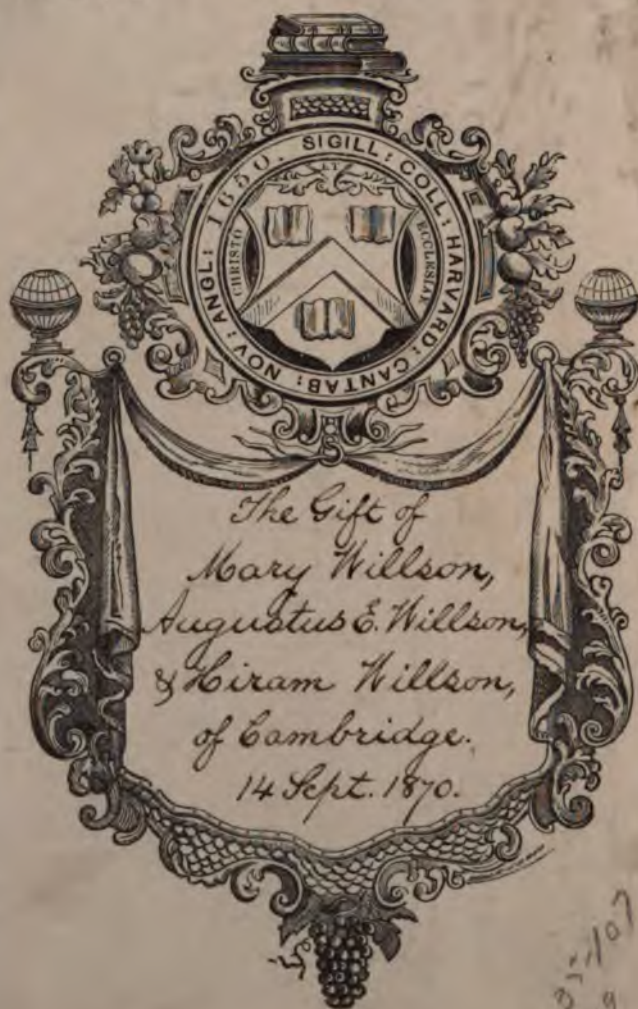 SIGILL: COLL: HARVARD: CANTAB: NOV: ANGL: 1650.
CHRISTO
ECCLESIAE
The Gift of
Mary Willson,
Augustus E. Willson,
& Hiram Willson,
of Cambridge.
14 Sept. 1870.